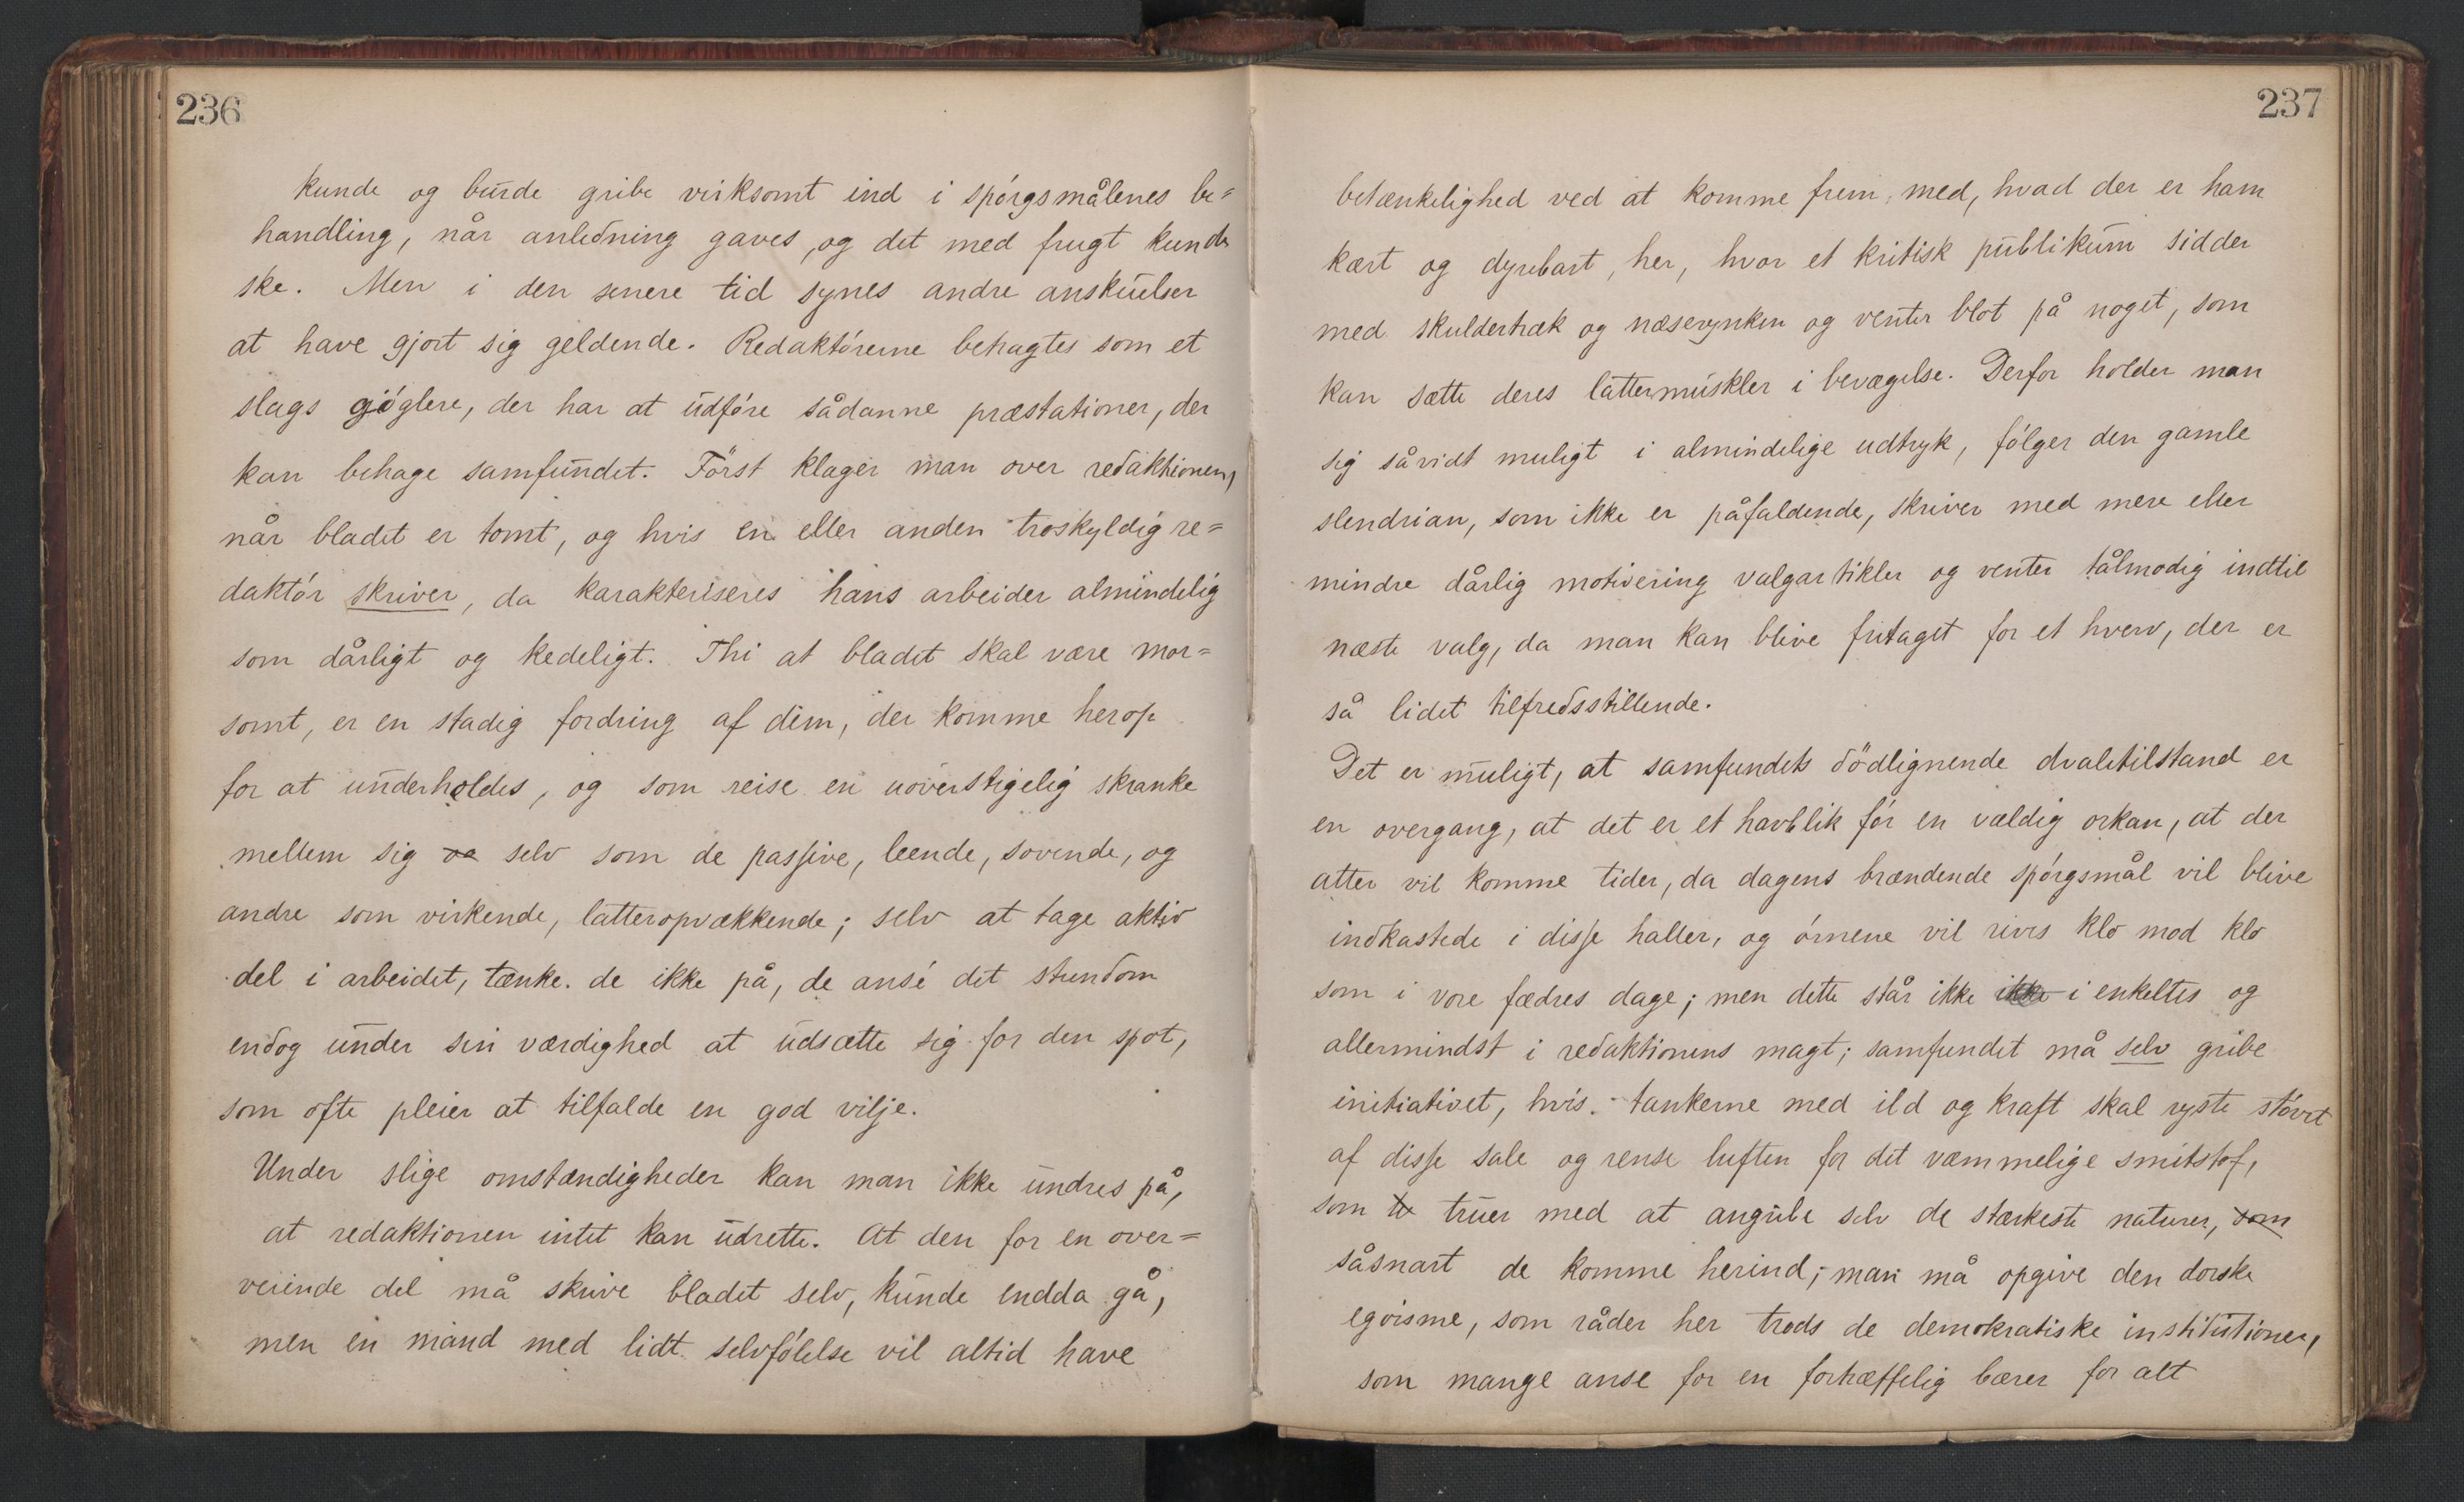 236
kunde og burde gribe virksomt ind i spórgsmålenes be=
handling, når anledning gaves, og det med frugt kunde
ske. Men i den senere tid synes andre anskuelser
at have gjort sig geldende. Redaktórerne betragtes som et
slags góglere, der har at udfóre sådanne præstationer, der
kan behage samfundet. Först klager man over redaktionen,
når bladet er tomt, og hvis en eller anden troskyldig re=
daktór skriver, da karakteriseres hans arbeider almindelig
som dårligt og kedeligt. Thi at bladet skal være mor=
somt, er en stadig fordring af dem, der komme herop
for at underholdes, og som reise en uoverstigelig skranke
mellem sig va selv som de passive, leende, sovende, og
andre som virkende, latteropvækkende; selv at tage aktiv
del i arbeidet, tænke de ikke på, de ansé det stundom
endog under sin værdighed at udsætte sig for den spot,
som ofte pleier at tilfalde en god vilje.
Under slige omstændigheder kan man ikke undres på,
at redaktionen intet kan udrette. At den for en over=
veiende del må skrive bladet selv, kunde endda gå,
men en mand med lidt selvfólelse vil altid have
237
betænkelighed ved at komme frem med, hvad der er ham
kært og dyrebart, her, hvor et kritisk publikum sidder
med skuldertræk og næserynken og venter blot på noget, som
kan sætte deres lattermuskler i bevægelse. Derfor holder man
sig såvidt muligt i almindelige udtryk, fólger den gamle
slendrian, som ikke er påfaldende, skriver med mere eller
mindre dårlig motivering valgartikler og venter tålmodig indtil
næste valg, da man kan blive fritaget for et hverv, der er
så lidet tilfredsstillende.
Det er muligt, at samfundets dödlignende dvaletilstand er
en overgang, at det er et havblik fór en vældig orkan, at der
atter vil komme tider, da dagens brændende spórgsmål vil blive
indkastede i disse haller, og órnene vil rives klo mod klo
som i vore fædres dage; men dette står ikke ikke i enkeltes og
allermindst i redaktionens magt; samfundet må selv gribe
initiativet, hvis tankerne med ild og kraft skal ryste stóvet
af disse sale og rense luften for det væmmelige smitstof,
som te truer med at angribe selv de stærkeste naturer, som
såsnart de komme herind; man må opgive den dorske
egoisme, som råder her trods de demokratiske institutioner,
som mange anse for en fortræffelig bærer for alt